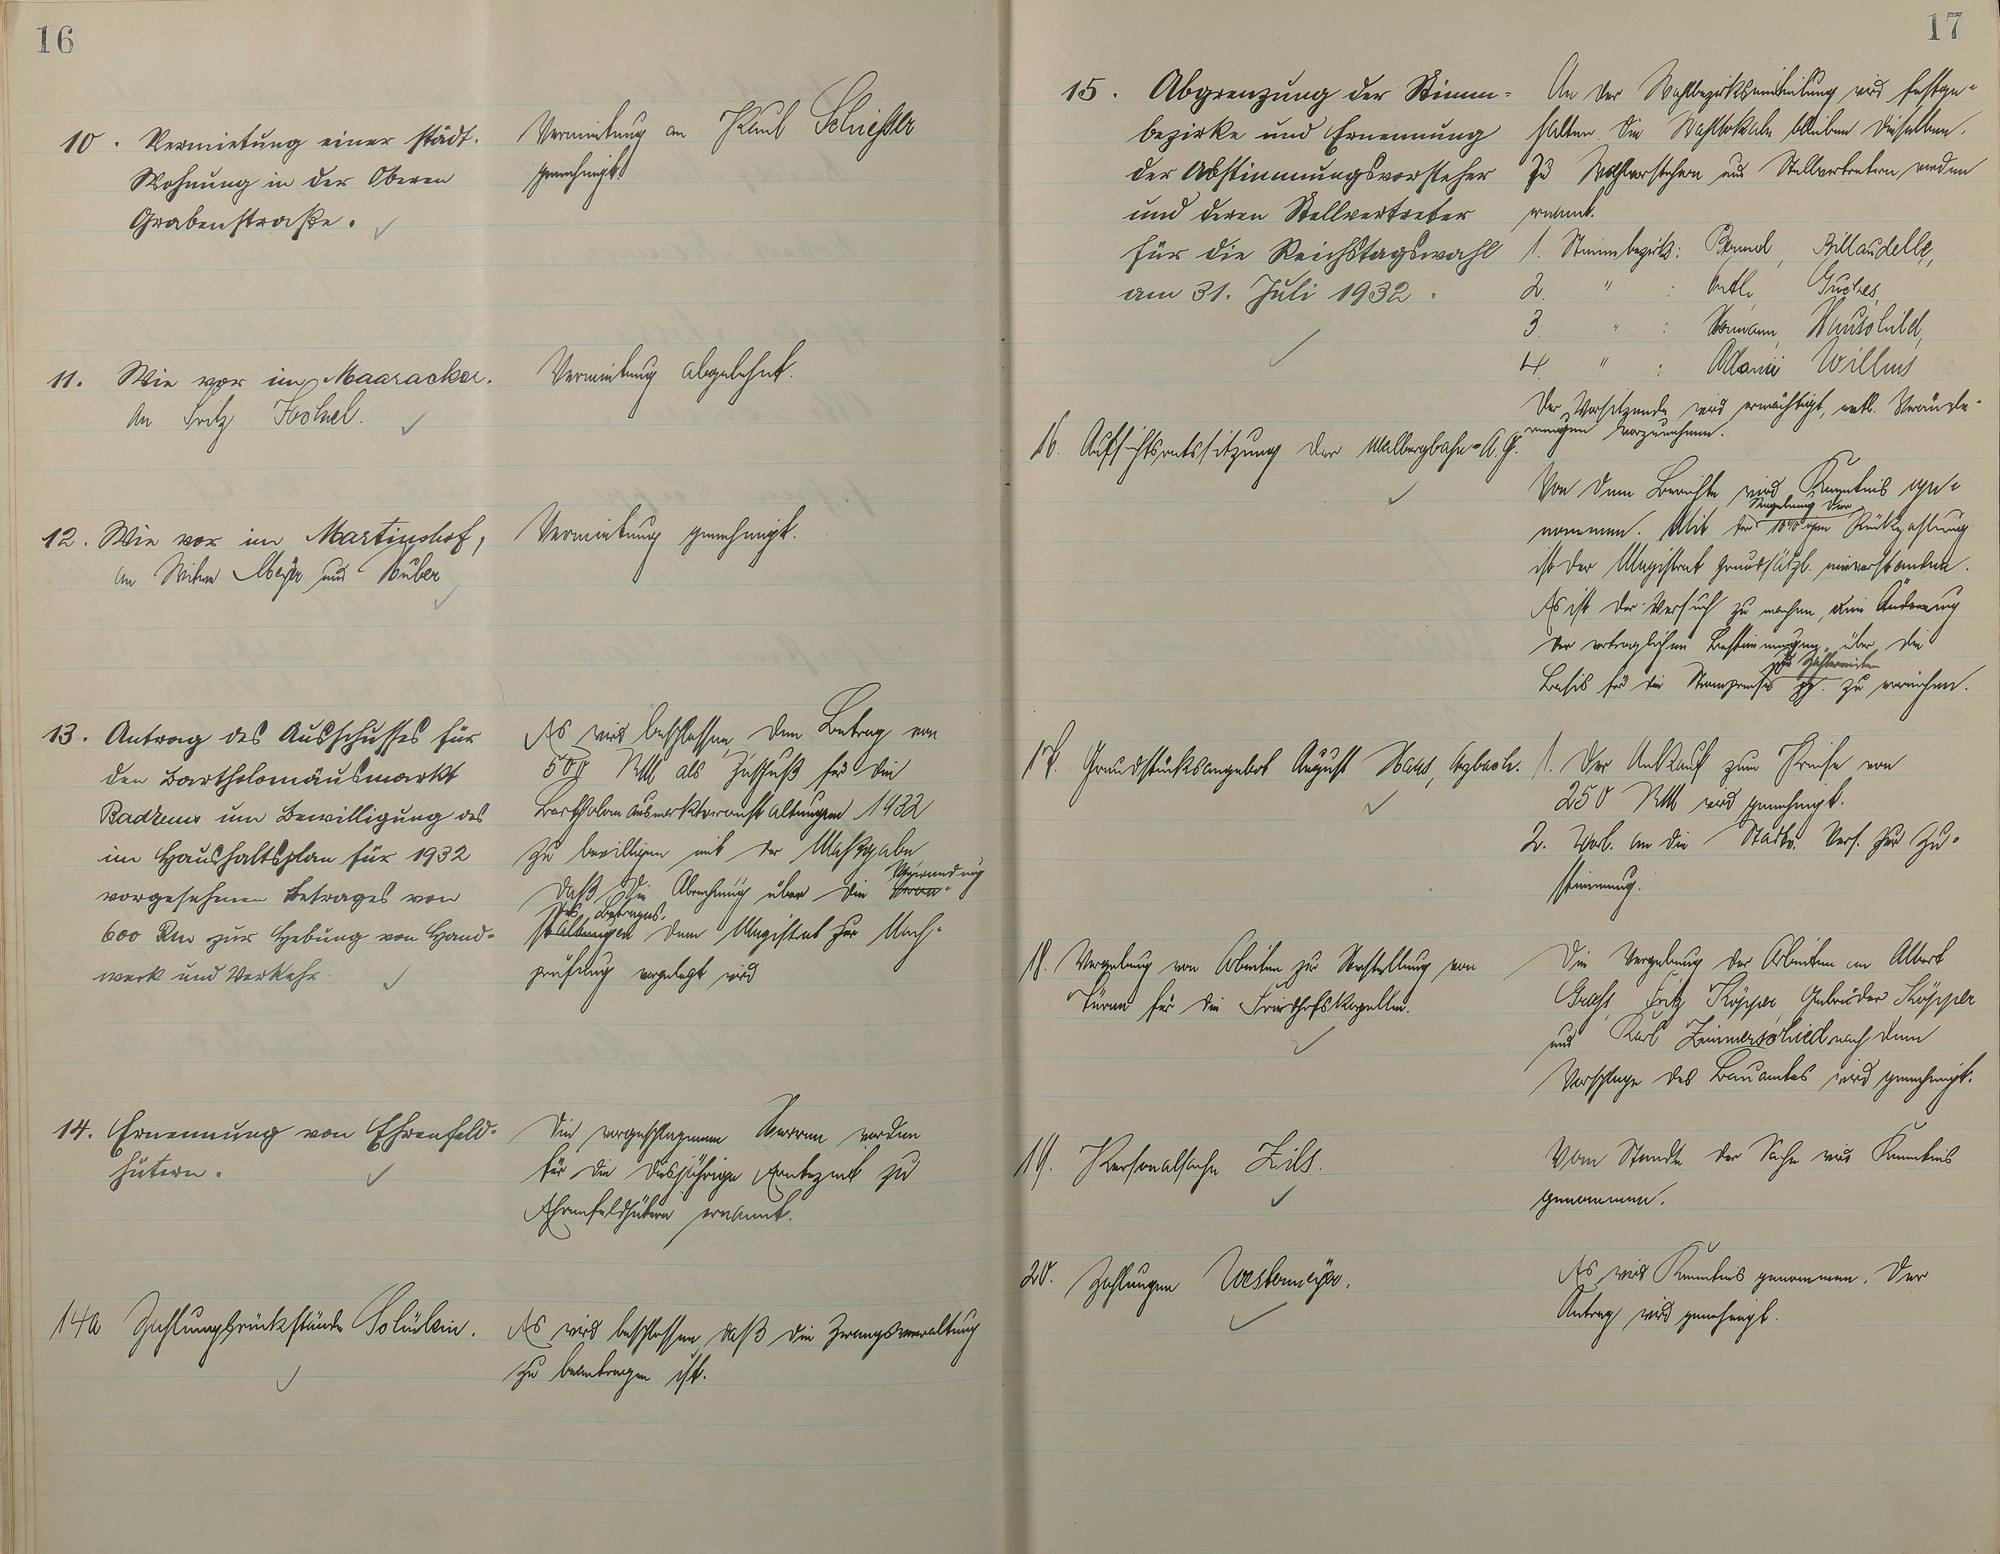 16
10. Vermietung einer städt.
Wohnung in der Oberen
Grabenstraße.
Vermietung an Paul Schießer
genehmigt.
11. Wie vor im Maaracker.
An Fritz
Vermietung abgelehnt.
12. Wie vor im Martinshof,
an Witwe Meyer und Huber
Vermietung genehmigt.
13. Antrag des Ausschusses für
den Bartholomäusmarkt
um Bewilligung des
im Haushaltsplan für 1932
vorgesehenen Betrages von
600 RM zur Hebung von Hand-
werk und Verkehr
Es wird beschlossen, den Betrag von
RM als Zuschuß für die
Bartholomäusmarktveranstaltungen 1932
zu bewilligen mit der Maßgabe
daß die Abrechnung über die Verwendung
des Betrages dem Magistrat zur Nach-
prüfung vorgelegt wird
14. Ernennung von Ehrenfeld-
hütern.
Die vorgeschlagenen Herren werden
für die diesjährige Erntezeit zu
Ehrenfeldhütern ernannt.
14a Zahlungsrückstände
Es wird beschlossen, daß die Zwangsverwaltung
zu beantragen ist.
17
15. Abgrenzung der Stimm-
bezirke und Ernennung
der Abstimmungsvorsteher
und deren Stellvertreter
für die Reichstagswahl
am 31. Juli 1932.
An der Wahlbezirkseinteilung wird festge-
halten. Die Wahllokale bleiben dieselben.
Zu Wahlvorstehern und Stellvertretern werden
ernannt.
1. Stimmbezirk: Billaudelle,
2. " :
3. " :
4. " : Willms
Der Vorsitzende wird ermächtigt, evtl. Verände-
rungen vorzunehmen.
16. Aufsichtsratssitzung der Malbergbahn-A.G.
Von dem Berichte wird Kenntnis ge-
nommen. Mit der Regelung der 10%igen Rückzahlung
ist der Magistrat grundsätzl. einverstanden.
Es ist der Versuch zu machen, eine Änderung
der vertraglichen Bestimmungen über die
Basis für die Strompreise zu erreichen.
17. Grundstücksangebot August Haus, Arzbach.
1. Der Ankauf zum Preise von
250 RM wird genehmigt.
2. Vorl. an die Stadtv. Vers. zur Zu-
stimmung.
18. Vergebung von Arbeiten zur Herstellung von
Türen für die Friedhofskapellen.
Die Vergebung der Arbeiten an Albert
Graf, Fritz Köpper, Gebrüder Köpper
und Karl Zimmerschied nach dem
Vorschlage des Bauamtes wird genehmigt.
19. Personalsache Zils.
Vom Stande der Sache wird Kenntnis
genommen.
20. Zahlungen Westermeyer.
Es wird Kenntnis genommen. Der
Antrag wird genehmigt.